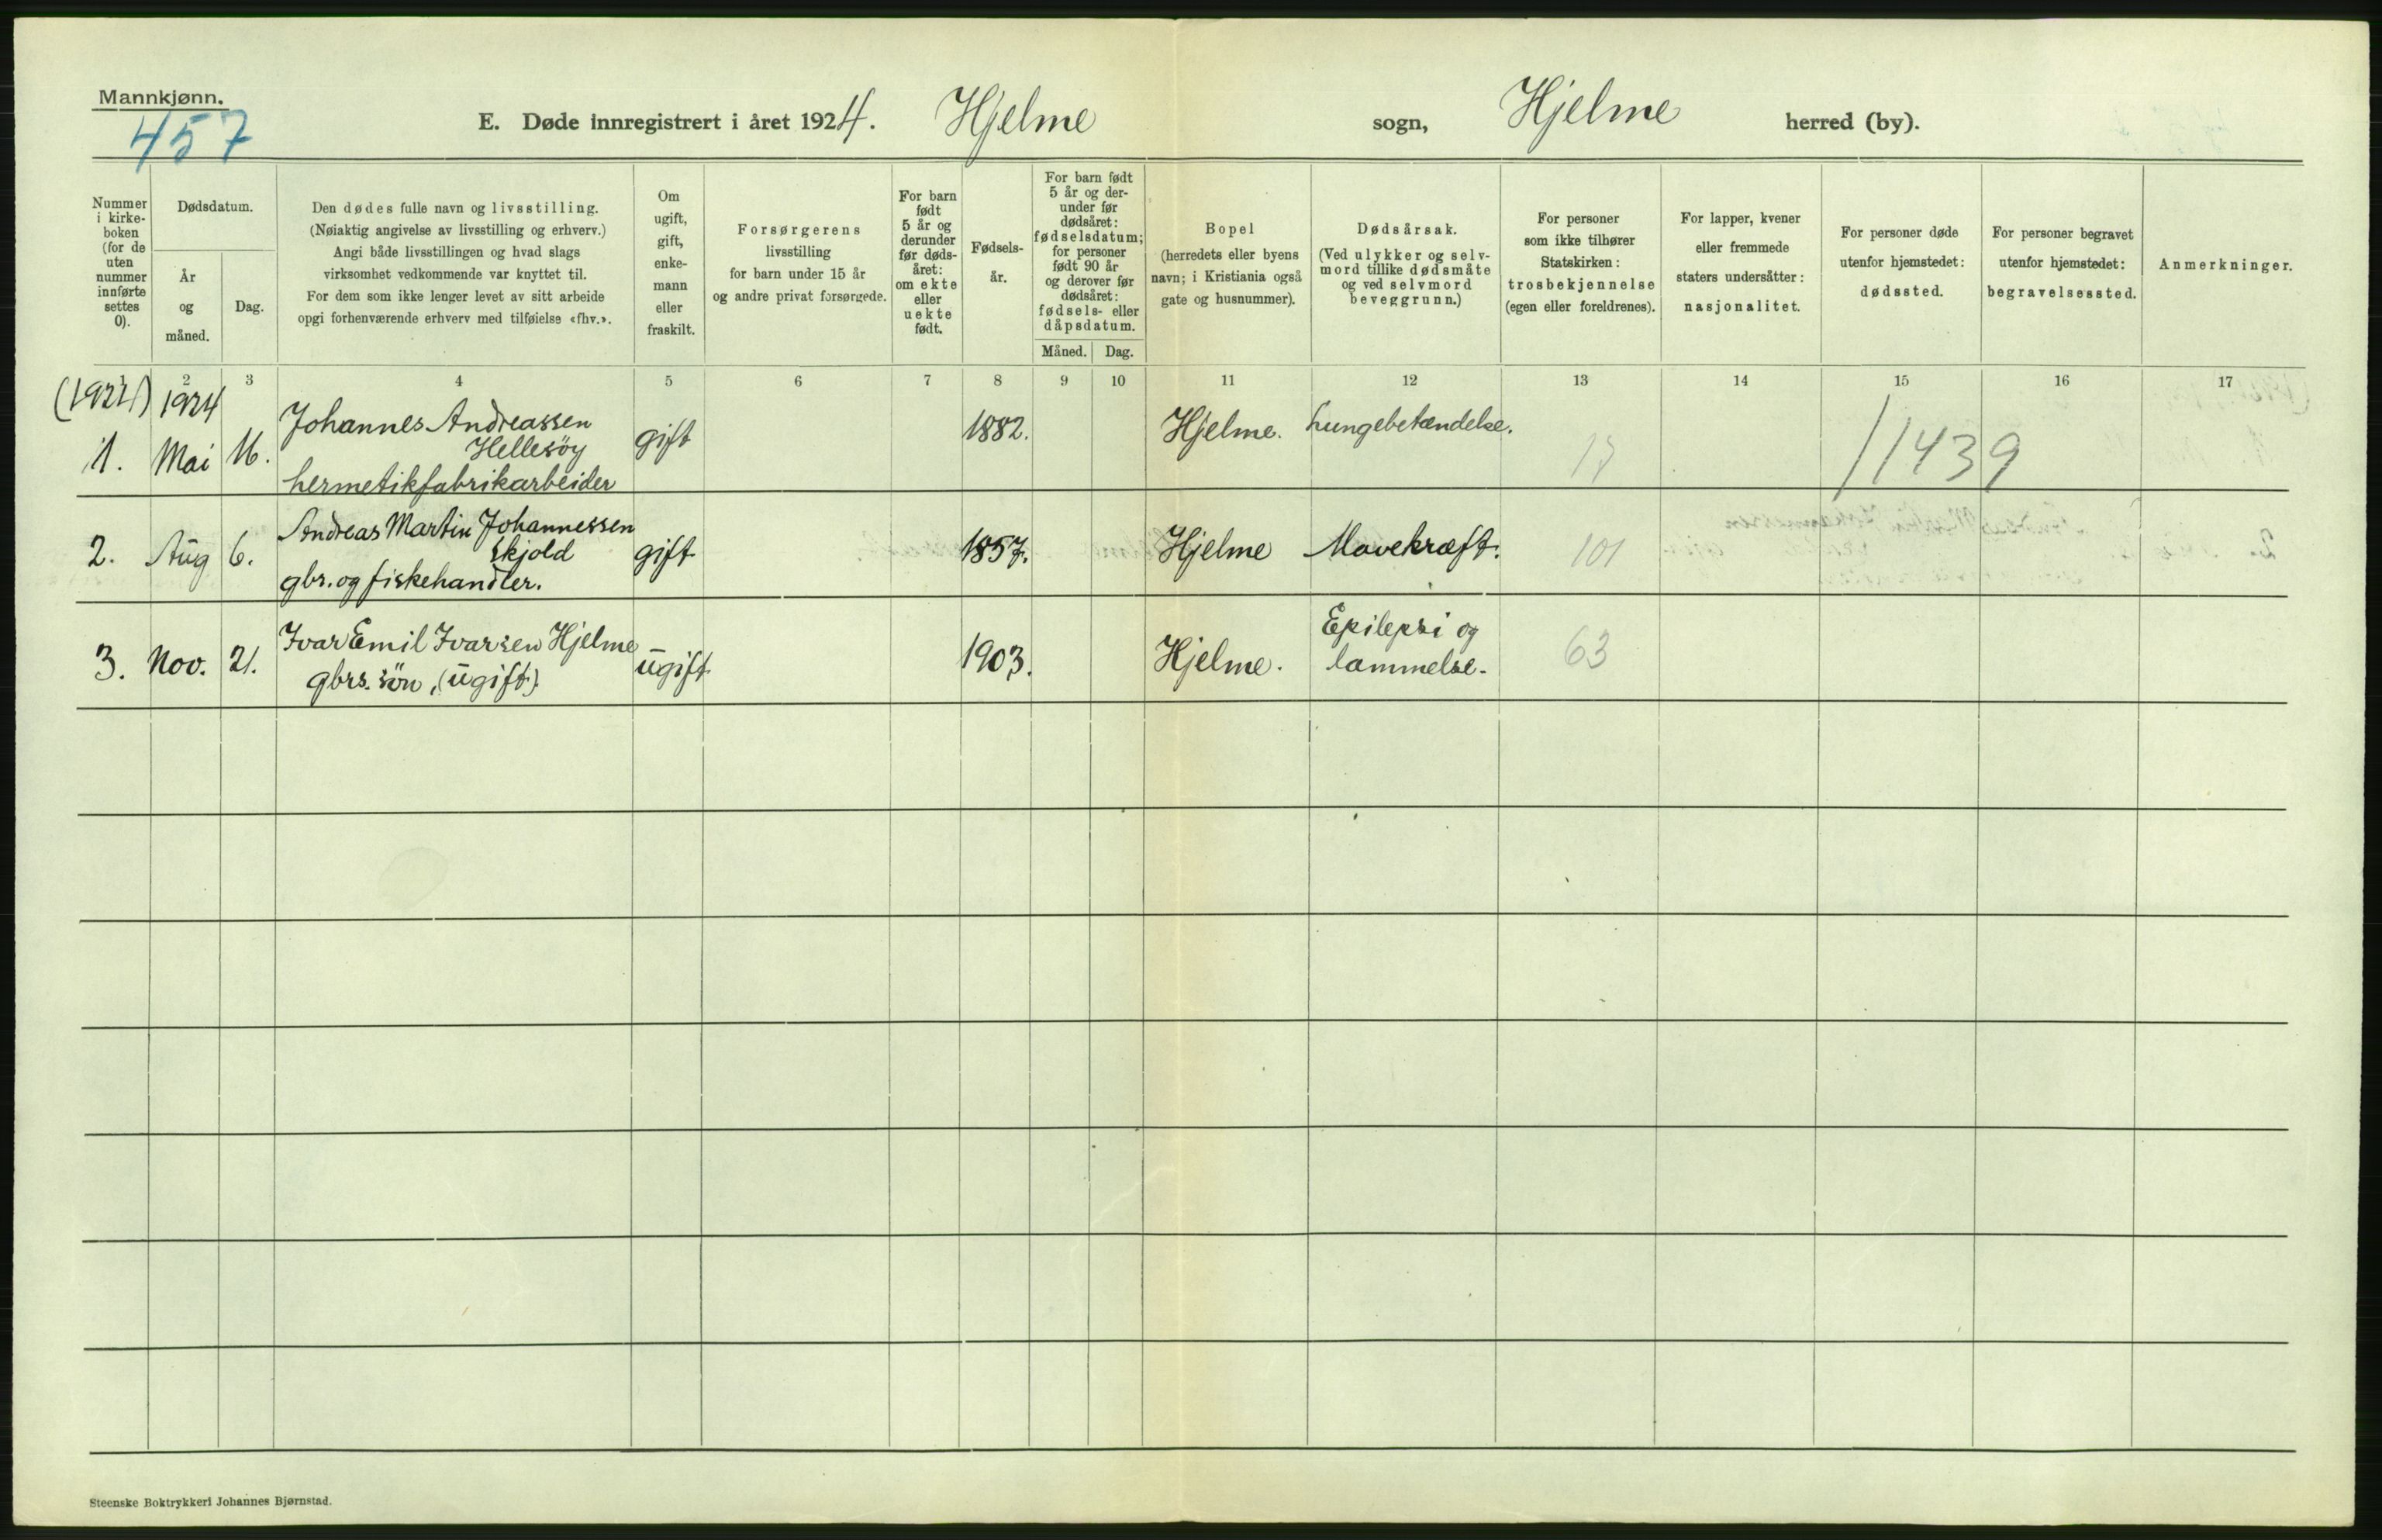 Mannkjønn.
457
E. Døde innregistrert i året 1924. Hjelme sogn, Hjelme herred (by).
Nummer
i kirke-
boken
(for de
uten
nummer
innførte
settes
0).
Dødsdatum.
År
og
måned.
Dag.
Den dødes fulle navn og livsstilling.
(Nøiaktig angivelse av livsstilling og erhverv.)
Angi både livsstillingen og hvad slags
virksomhet vedkommende var knyttet til.
For dem som ikke lenger levet av sitt arbeide
opgi forhenværende erhverv med tilføielse «fhv.».
Om
ugift,
gift,
enke-
mann
eller
fraskilt.
Forsørgerens
livsstilling
for barn under 15 år
og andre privat forsørgede.
For barn
født
5 år og
derunder
før døds-
året:
om ekte
eller
uekte
født.
Fødsels-
år.
For barn født
5 år og der-
under før
dødsåret:
fødselsdatum;
for personer
født 90 år
og derover før
dødsåret:
fødsels- eller
dåpsdatum.
Måned. Dag.
Bopel
(herredets eller byens
navn; i Kristiania også
gate og husnummer).
Dødsårsak.
(Ved ulykker og selv-
mord tillike dødsmåte
og ved selvmord
beveggrunn.)
For personer
som ikke tilhører
Statskirken:
trosbekjennelse
(egen eller foreldrenes).
For lapper, kvener
eller fremmede
staters undersåtter:
nasjonalitet.
For personer døde
utenfor hjemstedet:
dødssted.
For personer begravet
utenfor hjemstedet:
begravelsessted.
Anmerkninger.
1 2 3 4 5 6 7 8 9 10 11 12 13 14 15 16 17
(1924) 1924
1. Mai 16. Johannes Andreassen
Hellesöy
hermetikfabrikarbeider
gift 1882. Hjelme. Lungebetændelse. 11439
2. Aug 6. Andreas Martin Johannessen
Skjold
gbr. og fiskehandler.
gift 1857. Hjelme Mavekræft. 101
3. Nov. 21. Ivar Emil Ivarsen Hjelme
gbrs. sön, (ugift).
ugift 1903. Hjelme. Epilepsi og
lammelse. 63
Steenske Boktrykkeri Johannes Bjørnstad.